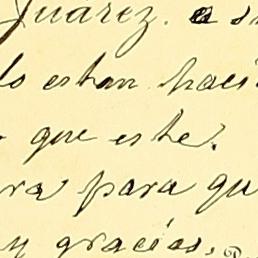 Juárez. a su
lo estan haci
que este.
ra para qu
y gracias,